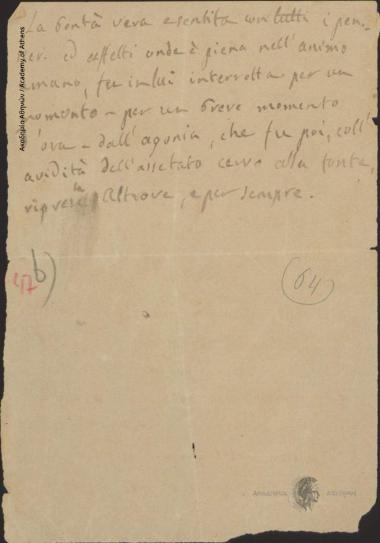 La bontà vera e sentita con tutti i pen-
ed affetti onde è piena nell'animo
umano, fu in lui interrotta per un
momento – per un breve momento
d'ora – dall'agonia, che fu poi, coll'
avidità dell'assetato cervo alla fonte,
ripresa Altrove, e per sempre.
47 b)
(64)
Ακαδημία Αθηνών / Academy of Athens
ΑΚΑΔΗΜΙΑ ΑΘΗΝΩΝ